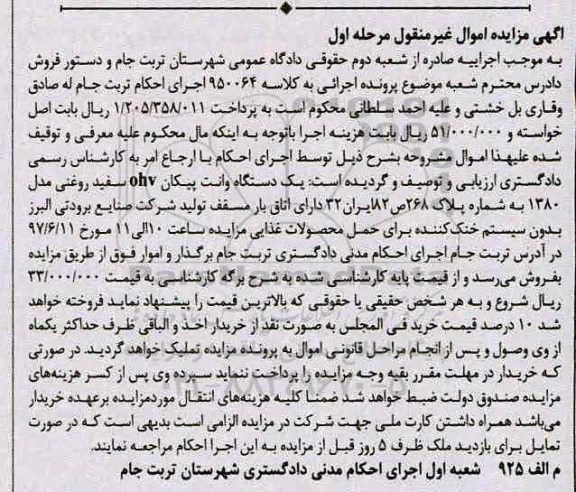 آگهی مزایده اموال غیرمنقول مرحله اول
به موجب اجراییه صادره از شعبه دوم حقوقی دادگاه عمومی شهرستان تربت جام و دستور فروش
دادرس محترم شعبه موضوع پرونده اجرائی به کلاسه ۹۵۰۰۶۴ اجرای احکام تربت جام له صادق
وقاری بل خشتی و علیه احمد سلطانی محکوم است به پرداخت ۱/۲۰۵/۳۵۸/۰۱۱ ریال بابت اصل
خواسته و ۵۱/۰۰۰/۰۰۰ ریال بابت هزینه اجرا باتوجه به اینکه مال محکوم علیه معرفی و توقیف
شده علیهذا اموال مشروحه بشرح ذیل توسط اجرای احکام با ارجاع امر به کارشناس رسمی
دادگستری ارزیابی و توصیف و گردیده است: یک دستگاه وانت پیکان ohv سفید روغنی مدل
۱۳۸۰ به شماره پلاک ۲۶۸ص۸۲ایران۳۲ دارای اتاق بار مسقف تولید شرکت صنایع برودتی البرز
بدون سیستم خنک‌کننده برای حمل محصولات غذایی مزایده ساعت ۱۰الی۱۱ مورخ ۹۷/۶/۱۱
در آدرس تربت جام اجرای احکام مدنی دادگستری تربت جام برگذار و اموار فوق از طریق مزایده
بفروش می‌رسد و از قیمت پایه کارشناسی شده به شرح برگه کارشناسی به قیمت ۳۳/۰۰۰/۰۰۰
ریال شروع و به هر شخص حقیقی یا حقوقی که بالاترین قیمت را پیشنهاد نماید فروخته خواهد
شد ۱۰ درصد قیمت خرید فی المجلس به صورت نقد از خریدار اخذ و الباقی ظرف حداکثر یکماه
از وی وصول و پس از انجام مراحل قانونی اموال به برونده مزایده تملیک خواهد گردید. در صورتی
که خریدار در مهلت مقرر بقیه وجه مزایده را پرداخت ننماید سپرده وی پس از کسر هزینه‌های
مزایده صندوق دولت ضبط خواهد شد ضمنا کلیه هزینه‌های انتقال موردمزایده برعهده خریدار
می‌باشد همراه داشتن کارت ملی جهت شرکت در مزایده الزامی است بدیهی است که در صورت
تمایل برای بازدید ملک ظرف ۵ روز قبل از مزایده به این اجرا احکام مراجعه نمایند.
م الف ۹۲۵ شعبه اول اجرای احکام مدنی دادگستری شهرستان تربت جام